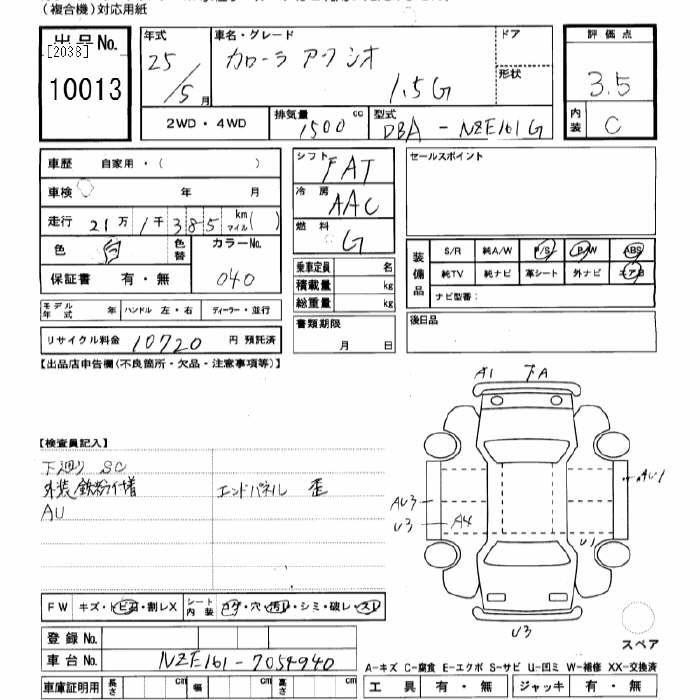 (複合機)対応用紙
出品No.
[2038]
10013
年式
25/5月
車名・グレード
カローラ アクシオ
1.5G
ドア
形状
評価点
3.5
内装
C
2WD・4WD
排気量
1500 cc
型式
DBA-NZE161G
車歴 自家用・( )
車検 年 月
走行 21万1千385 km マイル( )
色 白 色替
カラーNo.
040
保証書 有・無
モデル年式 年 ハンドル 左・右 ディーラー・並行
リサイクル料金 10720 円 預託済
シフト
FAT
冷房
AAC
燃料
G
乗車定員 名
積載量 kg
総重量 kg
書類期限
月 日
セールスポイント
装備品
S/R 純A/W P/S P/W ABS
純TV 純ナビ 革シート 外ナビ エアB
ナビ型番:
後日品
【出品店申告欄(不良箇所・欠品・注意事項等)】
A1 A
【検査員記入】
下廻り SC
外装鉄粉付着 エンドパネル 歪
AU
AU3
U3
A4
AU1
U1
U3
FW キズ・トビ石・割レX
シート内装 コゲ・穴・汚レ・シミ・破レ・スレ
登録No.
車台No. NZE161-7054940
車庫証明用 長さ cm 幅 cm 高さ cm
スペア
A-キズ C-腐食 E-エクボ S-サビ U-凹ミ W-補修 XX-交換済
工具 有・無 ジャッキ 有・無